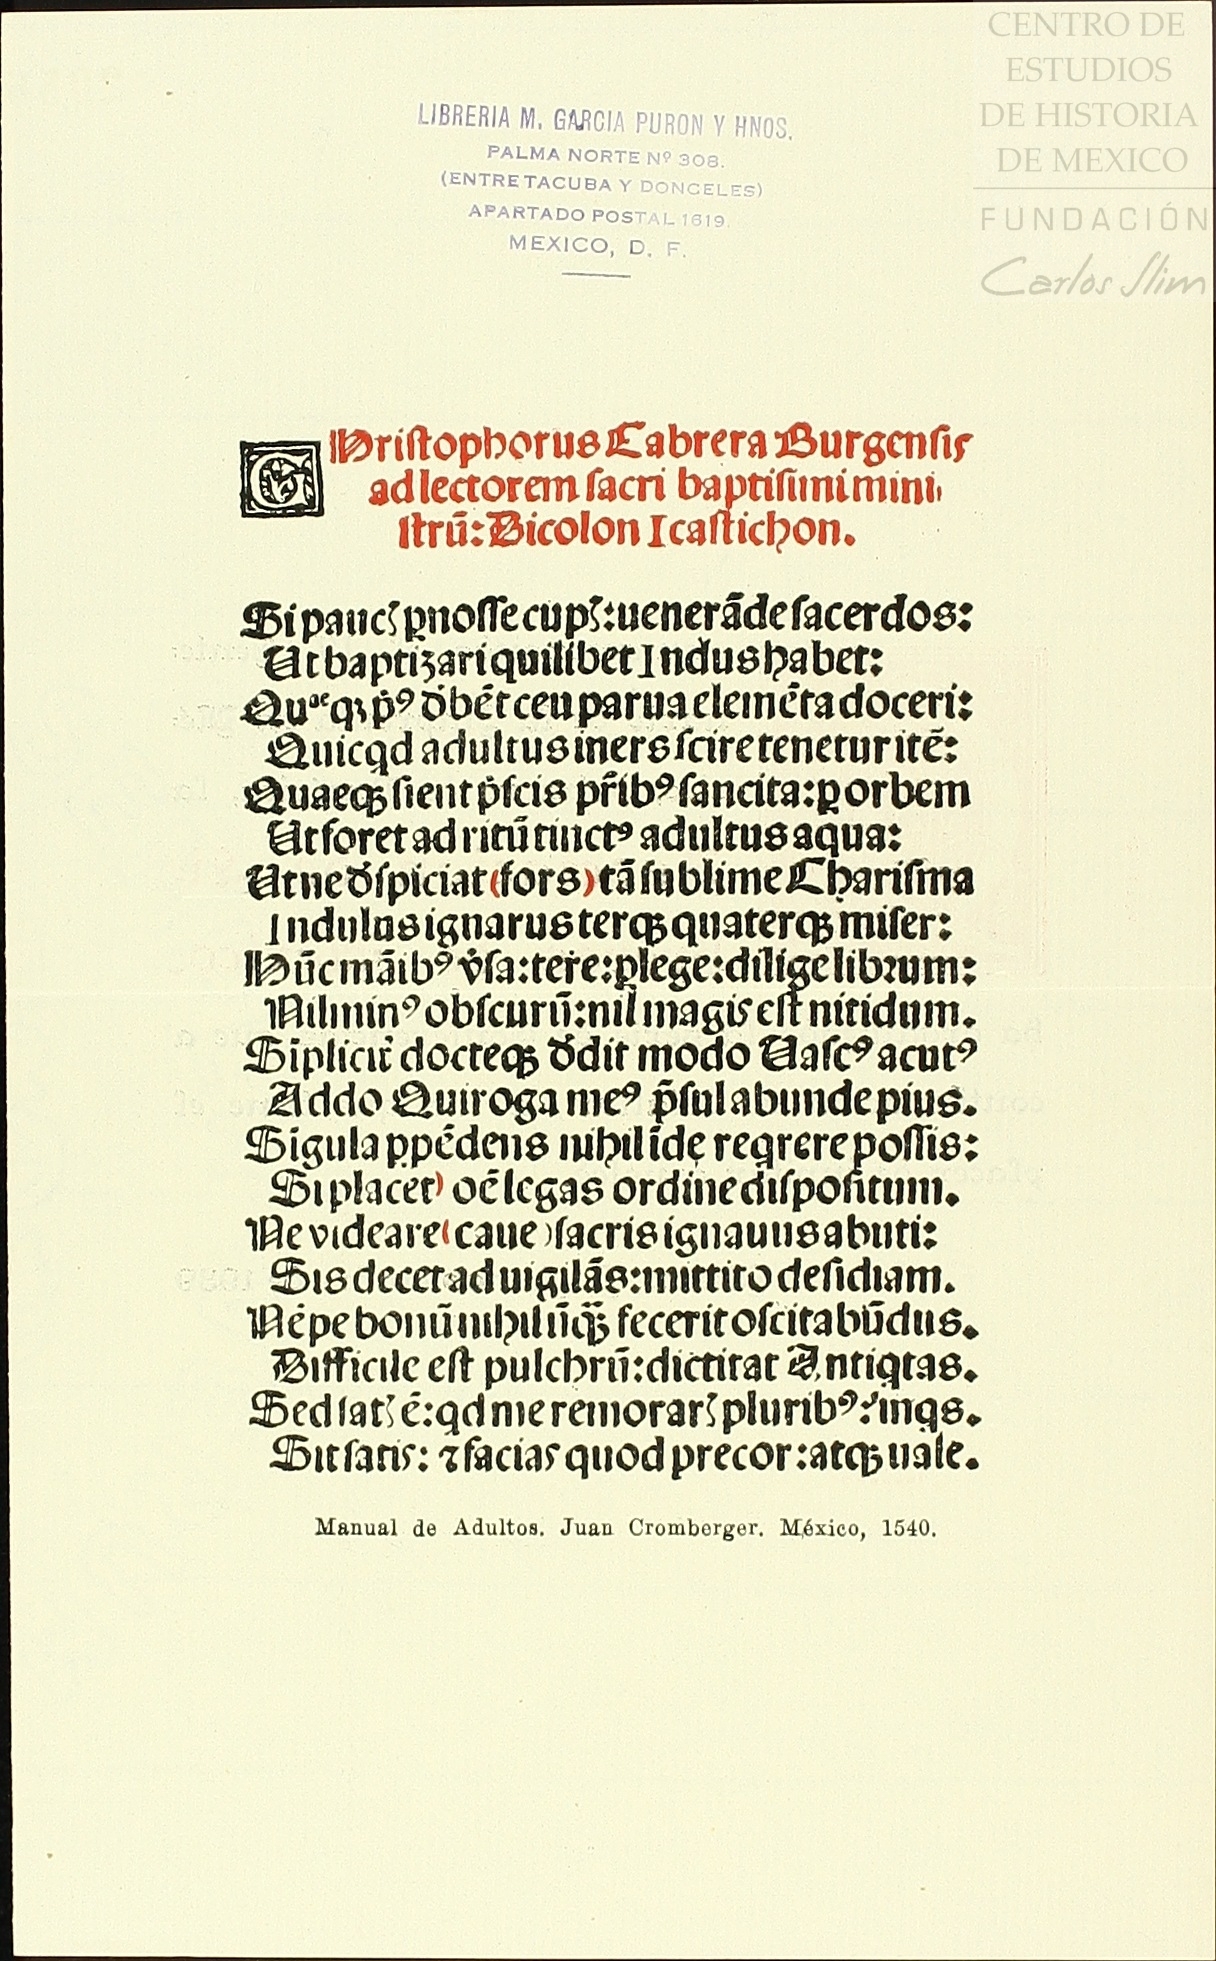 CENTRO DE
ESTUDIOS
DE HISTORIA
DE MEXICO
FUNDACIÓN
Carlos Slim
LIBRERIA M. GARCIA PURON Y HNOS.
PALMA NORTE Nº 308.
(ENTRE TACUBA Y DONCELES)
APARTADO POSTAL 1619.
MEXICO, D. F.
CHristophorus Cabrera Burgensis
ad lectorem sacri baptismi mini
strū: Dicolon Icastichon.
Si paucꝭ p̱nosse cupꝭ: uenerāde sacerdos:
Ut baptizari quilibet Indus habet:
Quaeqꝫ p̓ꝰ d̓bēt ceu parua elemēta doceri:
Quicqd adultus iners scire tenetur itē:
Quaeqꝫ sient p̓scis pr̄ibꝰ sancita: ꝑ orbem
Ut foret ad ritū tinctꝰ adultus aqua:
Ut ne d̓spiciat (fors) tā sublime Charisma
Indulus ignarus terqꝫ quaterqꝫ miser:
Hūc māibꝰ v̓sa: tere: ꝑlege: dilige librum:
Nil minꝰ obscurū: nil magis est nitidum.
Sīpliciť docteqꝫ d̓dit modo Uascꝰ acutꝰ
Addo Quiroga meꝰ p̄sul abunde pius.
Sīgula ꝑpēdens nihil īde reqrere possis:
Si placet) oē legas ordine dispositum.
Ne videare (caue) sacris ignauus abuti:
Sis decet aduigilās: mittito desidiam.
Nēpe bonū nihil ūqꝫ̄ fecerit oscitabūdus.
Difficile est pulchrū: dictitat Antiqtas.
Sed satꝭ ē: qd me remorarꝭ pluribꝰ: inqs.
Sit satis: ⁊ facias quod precor: atqꝫ uale.
Manual de Adultos. Juan Cromberger. México, 1540.